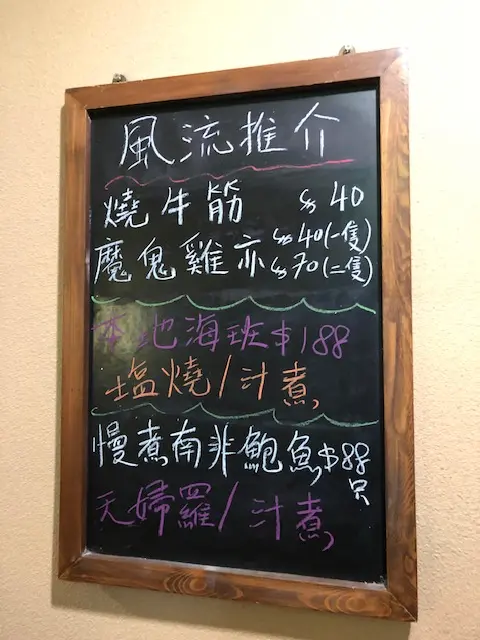 風流推介
燒牛筋 $40
魔鬼雞亦 $40(一隻)
$70(二隻)
本地海班$188
塩燒/汁煮
慢煮南非鮑魚$88
只
天婦羅/汁煮